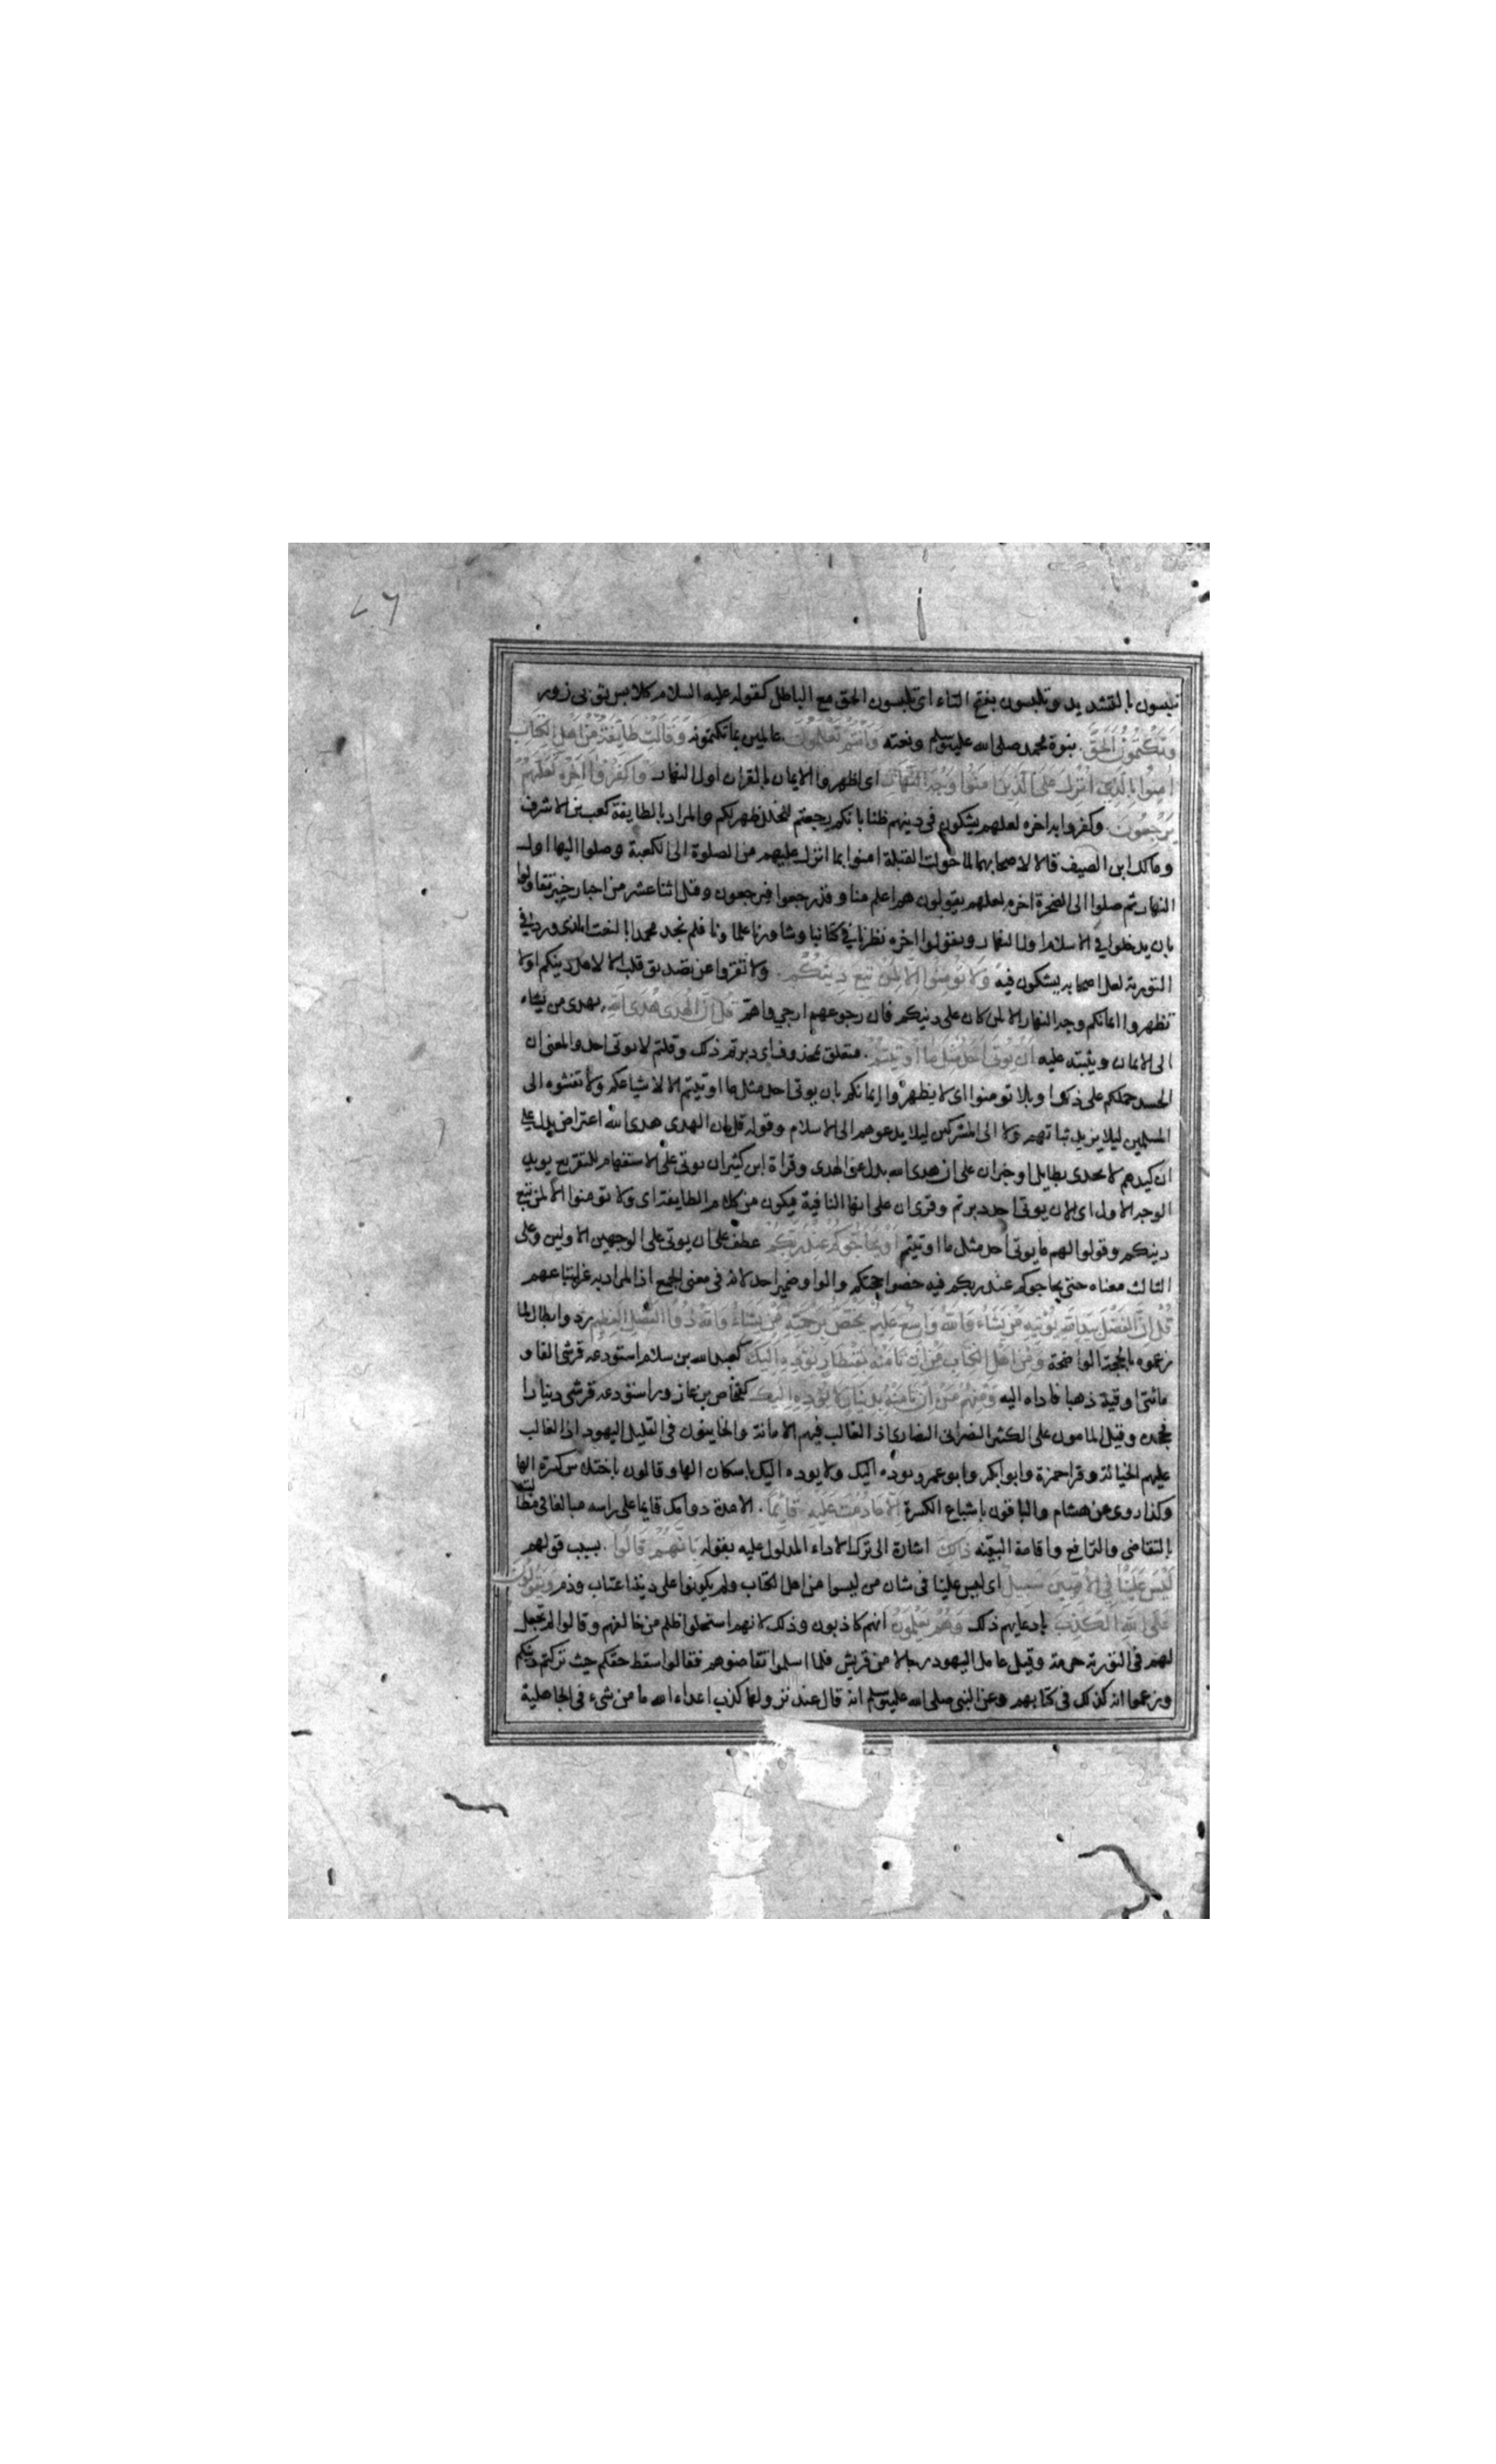 تلبسون بالتشديد وتلبسون بفتح التاء اى تلبسون الحق مع الباطل كقوله عليه السلام كلابس ثوبى زور
وَتَكْتُمُونَ الْحَقَّ. بنوة محمد صلى الله عليه وسلم ونعته وَاَنْتُمْ تَعْلَمُونَ. عالمين بما تكتمونه وَقَالَتْ طَايِفَةٌ مِنْ اَهْلِ الْكِتَابِ
اٰمِنُوا بِالَّذِى اُنْزِلَ عَلَى الَّذِينَ اٰمَنُوا وَجْهَ النَّهَارِ اى اظهروا الايمان بالقران اول النهار وَاكْفُرُوا اٰخِرَهُ لَعَلَّهُمْ
يَرْجِعُونَ. وكفروا به اخره لعلهم يشكون فى دينهم ظنا بانكم رجعتم لخلل ظهر لكم والمراد بالطايفة كعب بن الاشرف
ومالك ابن الصيف قالا لاصحابهما لما حولت القبلة امنوا بما انزل عليهم من الصلوة الى الكعبة وصلوا اليها اول
النهار ثم صلوا الى الصخرة اخره لعلهم يقولون هم اعلم منا وقد رجعوا فيرجعون وقيل اثنا عشر من احبار خيبر تقاولوا
بان يدخلوا فى الاسلام اول النهار ويقولوا اخره نظرنا فى كتابنا وشاورنا علماونا فلم نجد محمدا النعت الذى ورد فى
التورية لعل اصحابه يشكون فيه وَلَا تُؤْمِنُوا اِلَّا لِمَنْ تَبِعَ دِينَكُمْ. ولا تقروا عن تصديق قلب الا لاهل دينكم اولا
تظهروا ايمانكم وجه النهار الا لمن كان على دينكم فان رجوعهم ارجى واهم قُلْ اِنَّ الْهُدَى هُدَى اللهِ. يهدى من يشاء
الى الايمان ويثبته عليه اَنْ يُؤْتَى اَحَدٌ مِثْلَ مَا اُوتِيتُمْ. متعلق بمحذوف اى دبرتم ذلك وقلتم لان يوتى احد والمعنى ان
الحسد حملكم على ذلك او بلا تومنوا اى لا يظهروا ايمانكم بان يوتى احد مثل ما اوتيتم الا لاشياعكم ولا تفشوه الى
المسلمين ليلا يزيد ثباتهم ولا الى المشركين ليلا يدعوهم الى الاسلام وقوله قل ان الهدى هدى الله اعتراض يدل على
ان كيدهم لا يجدى بطايل او خبر ان على ان هدى الله بدل عن الهدى وقراة ابن كثير ان يوتى على الاستفهام للتقريع يويد
الوجه الاول اى الان يوتى احد دبرتم وقرى ان على انها النافية فيكون من كلام الطايفة اى ولا تومنوا الا لمن تبع
دينكم وقولوا لهم ما يوتى احد مثل ما اوتيتم اَوْ يُحَاجُّوكُمْ عِنْدَ رَبِّكُمْ عطف على ان يوتى على الوجهين الاولين وعلى
الثالث معناه حتى يحاجوكم عند ربكم فيدحضوا حجتكم والواو ضمير احد لانه فى معنى الجمع اذ المراد به غير اتباعهم
قُلْ اِنَّ الْفَضْلَ بِيَدِ اللهِ يُؤْتِيهِ مَنْ يَشَاءُ وَاللهُ وَاسِعٌ عَلِيمٌ يَخْتَصُّ بِرَحْمَتِهِ مَنْ يَشَاءُ وَاللهُ ذُو الْفَضْلِ الْعَظِيمِ رد وابطال لما
زعموه بالحجة الواضحة وَمِنْ اَهْلِ الْكِتَابِ مَنْ اِنْ تَاْمَنْهُ بِقِنْطَارٍ يُؤَدِّهِ اِلَيْكَ كعبد الله بن سلام استودعه قرشى الفا و
مائتى اوقية ذهبا فاداه اليه وَمِنْهُمْ مَنْ اِنْ تَاْمَنْهُ بِدِينَارٍ لَا يُؤَدِّهِ اِلَيْكَ كفنحاص بن عازورا استودعه قرشى دينارا
فجحده وقيل المامون على الكثير النصارى اذ الغالب فيهم الامانة والخاينون فى القليل اليهود اذ الغالب
عليهم الخيانة وقرا حمزة وابو بكر وابو عمرو يوده اليك ولا يوده اليك باسكان الها وقالون باختلاس كسرة الها
وكذا روى عن هشام والباقون باشباع الكسرة اِلَّا مَا دُمْتَ عَلَيْهِ قَائِمًا. الا مدة دوامك قايما على راسه مبالغا فى مطالبته
بالتقاضى والترافع واقامة البينه ذَلِكَ اشارة الى ترك الاداء المدلول عليه بقوله بِاَنَّهُمْ قَالُوا. بسبب قولهم
لَيْسَ عَلَيْنَا فِى الْاُمِّيِّينَ سَبِيلٌ اى ليس علينا فى شان من ليسوا من اهل الكتاب ولم يكونوا على ديننا عتاب وذم وَيَقُولُونَ
عَلَى اللهِ الْكَذِبَ بادعايهم ذلك وَهُمْ يَعْلَمُونَ انهم كاذبون وذلك لانهم استحلوا ظلم من خالفهم وقالوا لم تجعل
لهم فى التورية حرمة وقيل عامل اليهود رجالا من قريش فلما اسلموا تقاضوهم فقالوا سقط حقكم حيث تركتم دينكم
وزعموا انه كذلك فى كتابهم وعن النبى صلى الله عليه وسلم انه قال عند نزولها كذب اعداء الله ما من شىء فى الجاهلية